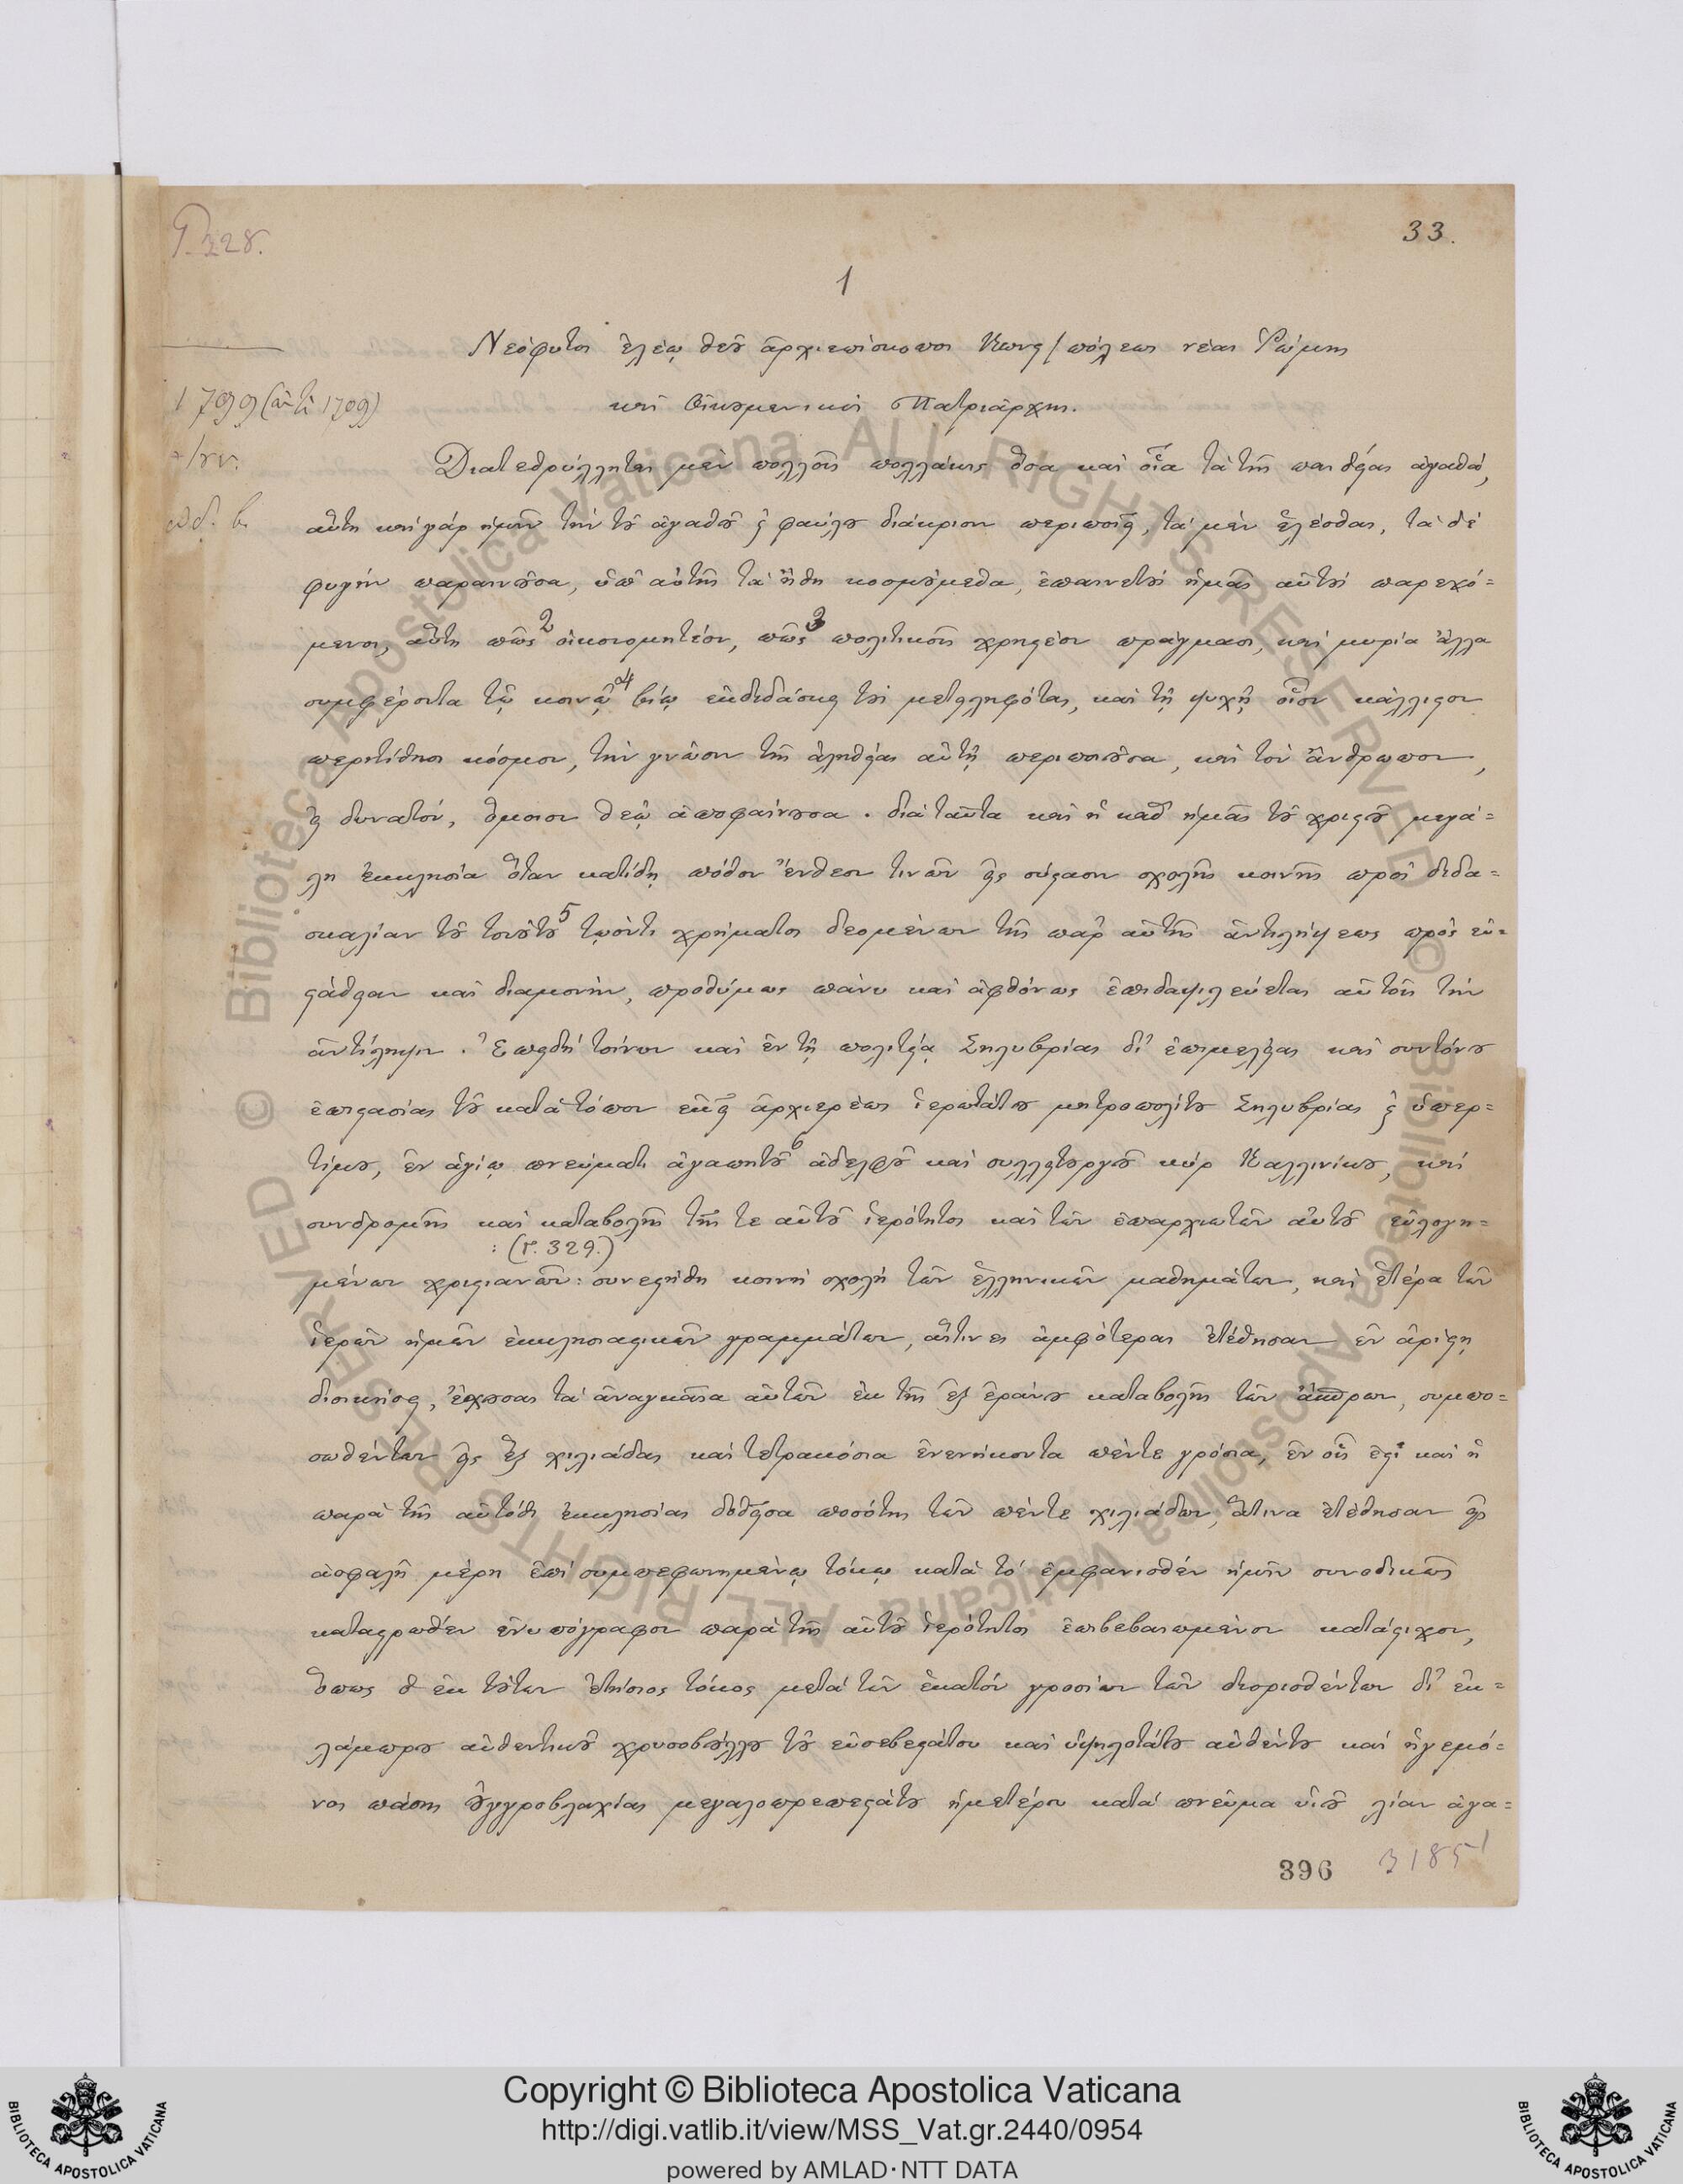 Γ. 328.
33.
1
Νεόφυτος ἐλέῳ θεοῦ ἀρχιεπίσκοπος Κωνς/πόλεως νέας Ῥώμης
1799 (ἀντὶ 1709)
καὶ Οἰκουμενικὸς Πατριάρχης.
Διατεθρύλληται μὲν πολλοῖς πολλάκις ὅσα καὶ οἷα τὰ τῆς παιδείας ἀγαθά,
αὕτη καὶ γάρ ἡμῖν τὴν τοῦ ἀγαθοῦ ϗ φαύλου διάκρισιν περιποιεῖ, τὰ μὲν ἑλέσθαι, τὰ δὲ
φυγεῖν παραινοῦσα, ὑπ' αὐτῆς τὰ ἤθη κοσμούμεθα, ἐπαινετοὺς ἡμᾶς αὐτοὺς παρεχό=
μενοι, αὕτη πῶς 2 οἰκονομητέον, πῶς 3 πολιτικοῖς χρηστέον πράγμασι, καὶ μυρία ἄλλα
συμφέροντα τῷ κοινῷ 4 βίῳ ἐκδιδάσκει τοὺς μετειληφότας, καὶ τῇ ψυχῇ οἷον κάλλιστον
περιτίθησι κόσμον, τὴν γνῶσιν τῆς ἀληθείας αὐτῇ περιποιοῦσα, καὶ τὸν ἄνθρωπον,
εἰ δυνατόν, ὅμοιον θεῷ ἀποφαίνουσα. διὰ ταῦτα καὶ ἡ καθ' ἡμᾶς τοῦ χριστοῦ μεγά=
λη ἐκκλησία ὅταν κατίδῃ πόθον ἔνθεον τινῶν εἰς σύστασιν σχολῆς κοινῆς πρὸς διδα=
σκαλίαν τοῦ τοιούτου 5 τῳόντι χρήματος δεομένων τῆς παρ' αὐτῆς ἀντιλήψεως πρὸς εὐ=
στάθειαν καὶ διαμονήν, προθύμως πάνυ καὶ ἀφθόνως ἐπιδαψιλεύεται αὐτοῖς τὴν
ἀντίληψιν. Ἐπειδή τοίνυν καὶ ἐν τῇ πολιτείᾳ Σηλυβρίας δι' ἐπιμελείας καὶ συντόνου
ἐπιστασίας τοῦ κατὰ τόπον ἐκεῖ ἀρχιερέως ἱερωτάτου μητροπολίτου Σηλυβρίας ϗ ὑπερ=
τίμου, ἐν ἁγίῳ πνεύματι ἀγαπητοῦ 6 ἀδελφοῦ καὶ συλλειτουργοῦ κύρ Καλλινίκου, καὶ
συνδρομῆς καὶ καταβολῆς τῆς τε αὐτοῦ ἱερότητος καὶ τῶν ἐπαρχιωτῶν αὐτοῦ εὐλογη=
: (Γ. 329.)
μένων χριστιανῶν: συνεστήθη κοινὴ σχολὴ τῶν ἑλληνικῶν μαθημάτων, καὶ ἑτέρα τῶν
ἱερῶν ἡμῶν ἐκκλησιαστικῶν γραμμάτων, αἵτινες ἀμφότεραι ἐτέθησαν ἐν ἀρίστῃ
διοικήσει, ἔχουσαι τὰ ἀναγκαῖα αὐτῶν ἐκ τῆς ἐξ ἐράνου καταβολῆς τῶν ἄσπρων, συμπο=
σωθέντων εἰς ἓξ χιλιάδας καὶ τετρακόσια ἐνενήκοντα πέντε γρόσια, ἐν οἷς ἐστὶ καὶ ἡ
παρὰ τῆς αὐτόθι ἐκκλησίας δοθεῖσα ποσότης τῶν πέντε χιλιάδων, ἅτινα ἐτέθησαν εἰς
ἀσφαλῆ μέρη ἐπὶ συμπεφωνημένῳ τόκῳ κατὰ τὸ ἐμφανισθὲν ἡμῖν συνοδικῶς
καταστρωθὲν ἐνυπόγραφον παρὰ τῆς αὐτοῦ ἱερότητος ἐπιβεβαιωμένον κατάστιχον,
ὅπως ὁ ἐκ τούτων ἐτήσιος τόκος μετὰ τῶν ἑκατόν γροσίων τῶν διορισθέντων δι' ἐκ=
λάμπρου αὐθεντικοῦ χρυσοβούλλου τοῦ εὐσεβεστάτου καὶ ὑψηλοτάτου αὐθέντου καὶ ἡγεμό=
νος πάσης Οὐγγροβλαχίας μεγαλοπρεπεστάτου ἡμετέρου κατὰ πνεῦμα υἱοῦ λίαν ἀγα=
396
Copyright © Biblioteca Apostolica Vaticana
http://digi.vatlib.it/view/MSS_Vat.gr.2440/0954
powered by AMLAD·NTT DATA